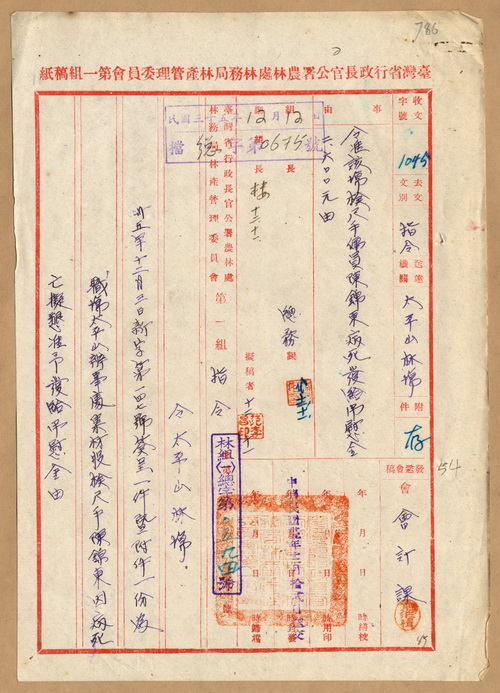 786
臺灣省行政長官公署農林處林務局林產管理委員會第一組稿紙
收文
字號
1045
去文
文別
指令
送達
機關
太平山林場
附件
存
事由
令准該場檢尺手傭員陳錦東病死發給弔慰金
二六〇〇元由
會會計課
154
民國三十五年12月12日
檔 總字第0675號
組長
總務課
擬稿者
年 月 日 時繕校
年 月 日 時用印
中華民國卅五年十二月拾弍日
臺灣省行政長官公署農林處
林務局林產管理委員會
第一組
指令
林組(一)總字第
號
令太平山林場
卅五年十二月三日新字第一四七號簽呈一件暨附件一份為
職場太平山辦事處集材股檢尺手陳錦東因病死
亡擬懇准予發給弔慰金由